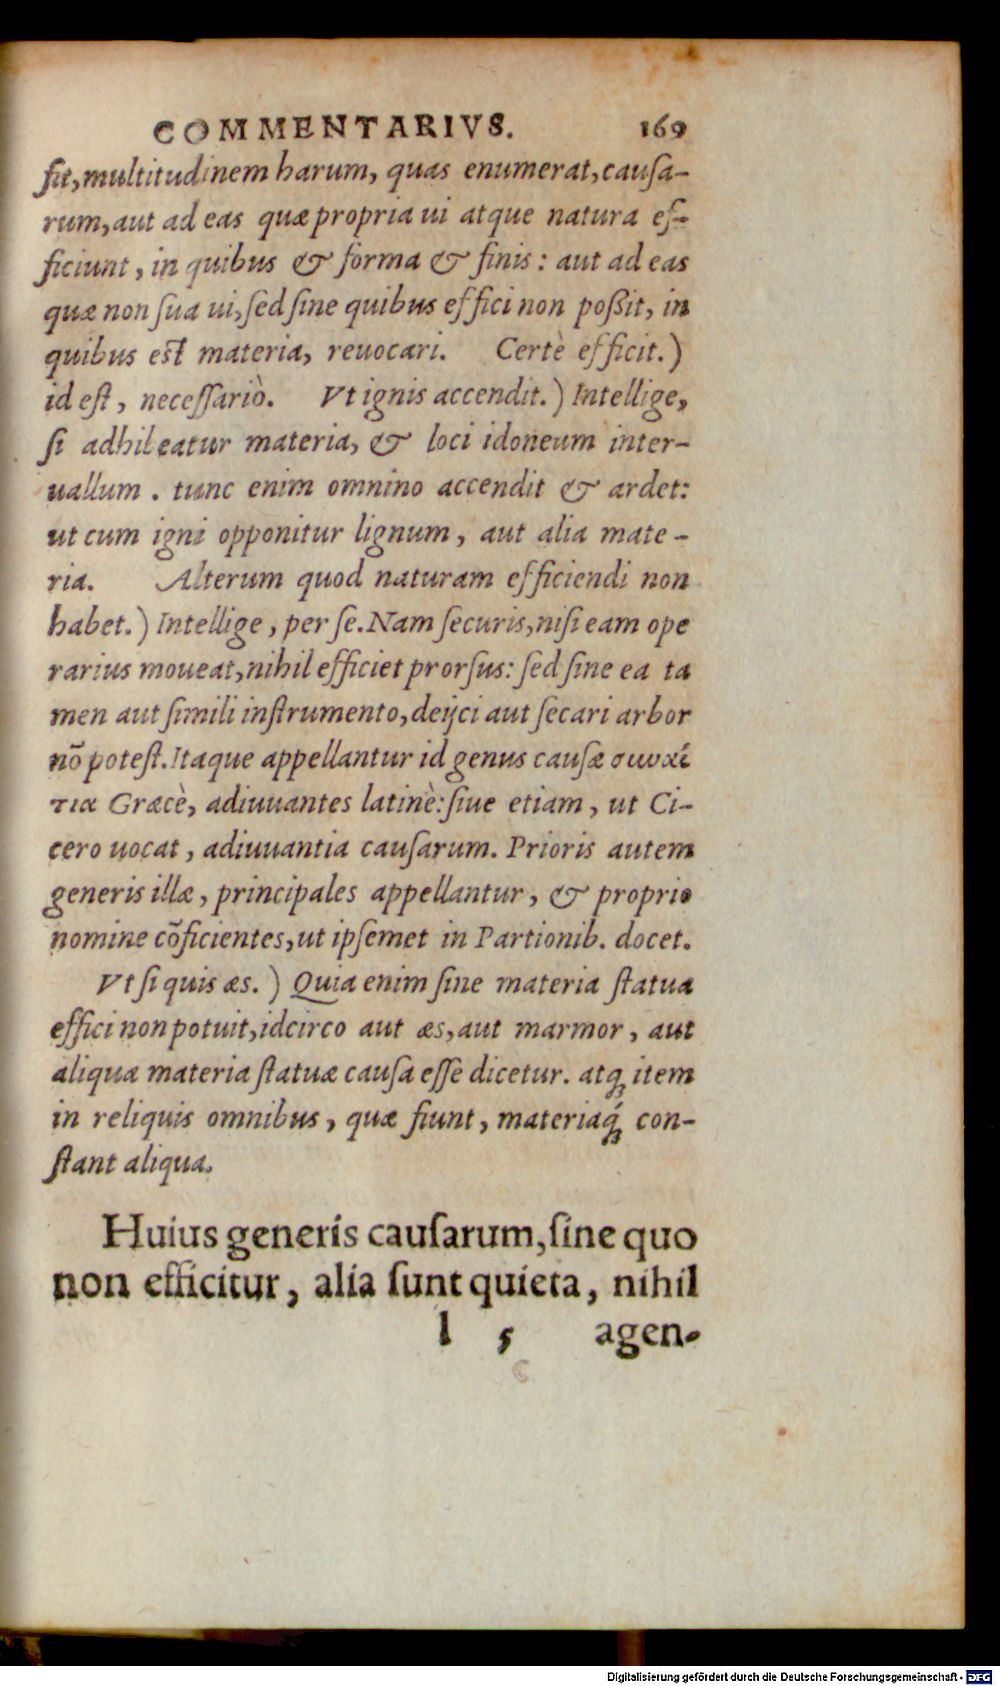 COMMENTARIVS. 169
ſit, multitudinem harum, quas enumerat, cauſa-
rum, aut ad eas quæ propria ui atque natura ef-
ficiunt, in quibus & forma & finis: aut ad eas
quæ non ſua ui, ſed ſine quibus effici non poßit, in
quibus eſt materia, reuocari. Certè efficit.)
id eſt, neceſſariò. Vt ignis accendit.) Intellige,
ſi adhibeatur materia, & loci idoneum inter-
uallum. tunc enim omnino accendit & ardet:
ut cum igni opponitur lignum, aut alia mate-
ria. Alterum quod naturam efficiendi non
habet.) Intellige, per ſe. Nam ſecuris, niſi eam ope
rarius moueat, nihil efficiet prorſus: ſed ſine ea ta
men aut ſimili inſtrumento, deijci aut ſecari arbor
nō poteſt. Itaque appellantur id genus cauſæ συναί
τια Græcè, adiuuantes latinè: ſiue etiam, ut Ci-
cero uocat, adiuuantia cauſarum. Prioris autem
generis illæ, principales appellantur, & proprio
nomine cōficientes, ut ipſemet in Partionib. docet.
Vt ſi quis æs.) Quia enim ſine materia ſtatua
effici non potuit, idcirco aut æs, aut marmor, aut
aliqua materia ſtatuæ cauſa eſſe dicetur. atq; item
in reliquis omnibus, quæ fiunt, materiaq́; con-
ſtant aliqua.
Huius generis cauſarum, ſine quo
non efficitur, alia ſunt quieta, nihil
l 5 agen-
Digitalisierung gefördert durch die Deutsche Forschungsgemeinschaft - DFG